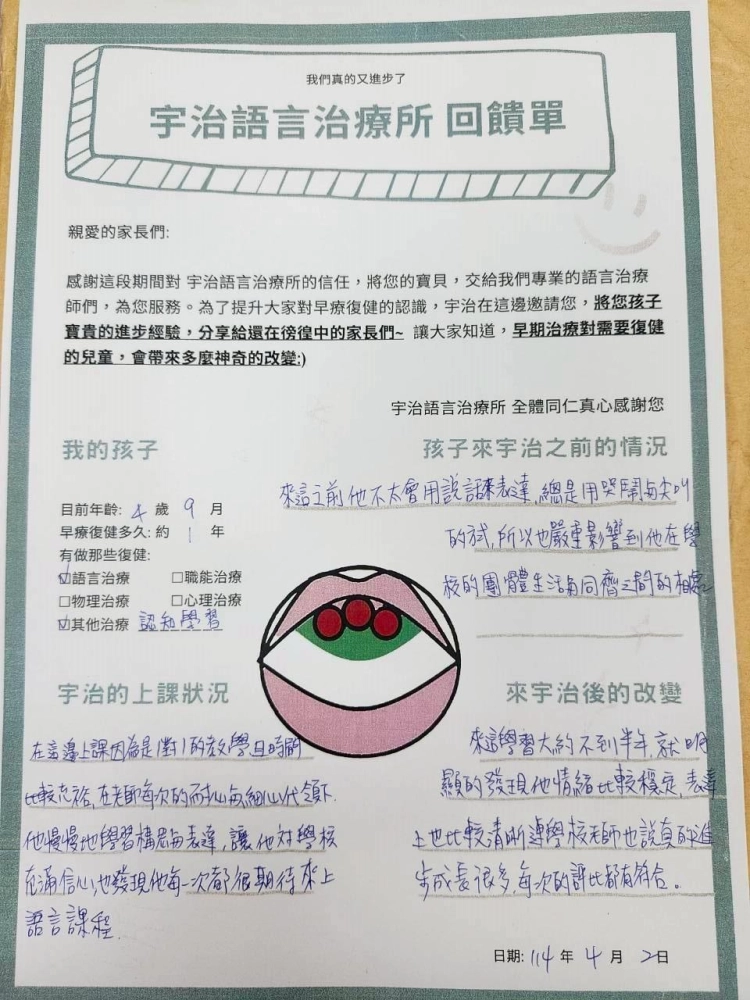 我們真的又進步了
宇治語言治療所 回饋單
親愛的家長們:
感謝這段期間對 宇治語言治療所的信任，將您的寶貝，交給我們專業的語言治療
師們，為您服務。為了提升大家對早療復健的認識，宇治在這邊邀請您，將您孩子
寶貴的進步經驗，分享給還在徬徨中的家長們~ 讓大家知道，早期治療對需要復健
的兒童，會帶來多麼神奇的改變:)
宇治語言治療所 全體同仁真心感謝您
我的孩子
目前年齡: 4 歲 9 月
早療復健多久: 約 1 年
有做那些復健:
☑語言治療 □職能治療
□物理治療 □心理治療
☑其他治療 認知學習
孩子來宇治之前的情況
來這之前他不太會用說話來表達,總是用哭鬧與尖叫
的方式,所以也嚴重影響到他在學
校的團體生活與同儕之間的相處
宇治的上課狀況
在這邊上課因為是1對1的教學且時間
比較充裕,在老師每次的耐心與細心代領下.
他慢慢地學習構思與表達,讓他對學校
充滿信心,也發現他每一次都很期待來上
語言課程.
來宇治後的改變
來這學習大約不到半年,就明
顯的發現他情緒比較穩定,表達
上也比較清晰連學校老師也說真的進
步成長很多,每次的評比都有符合。
日期: 114 年 4 月 2日